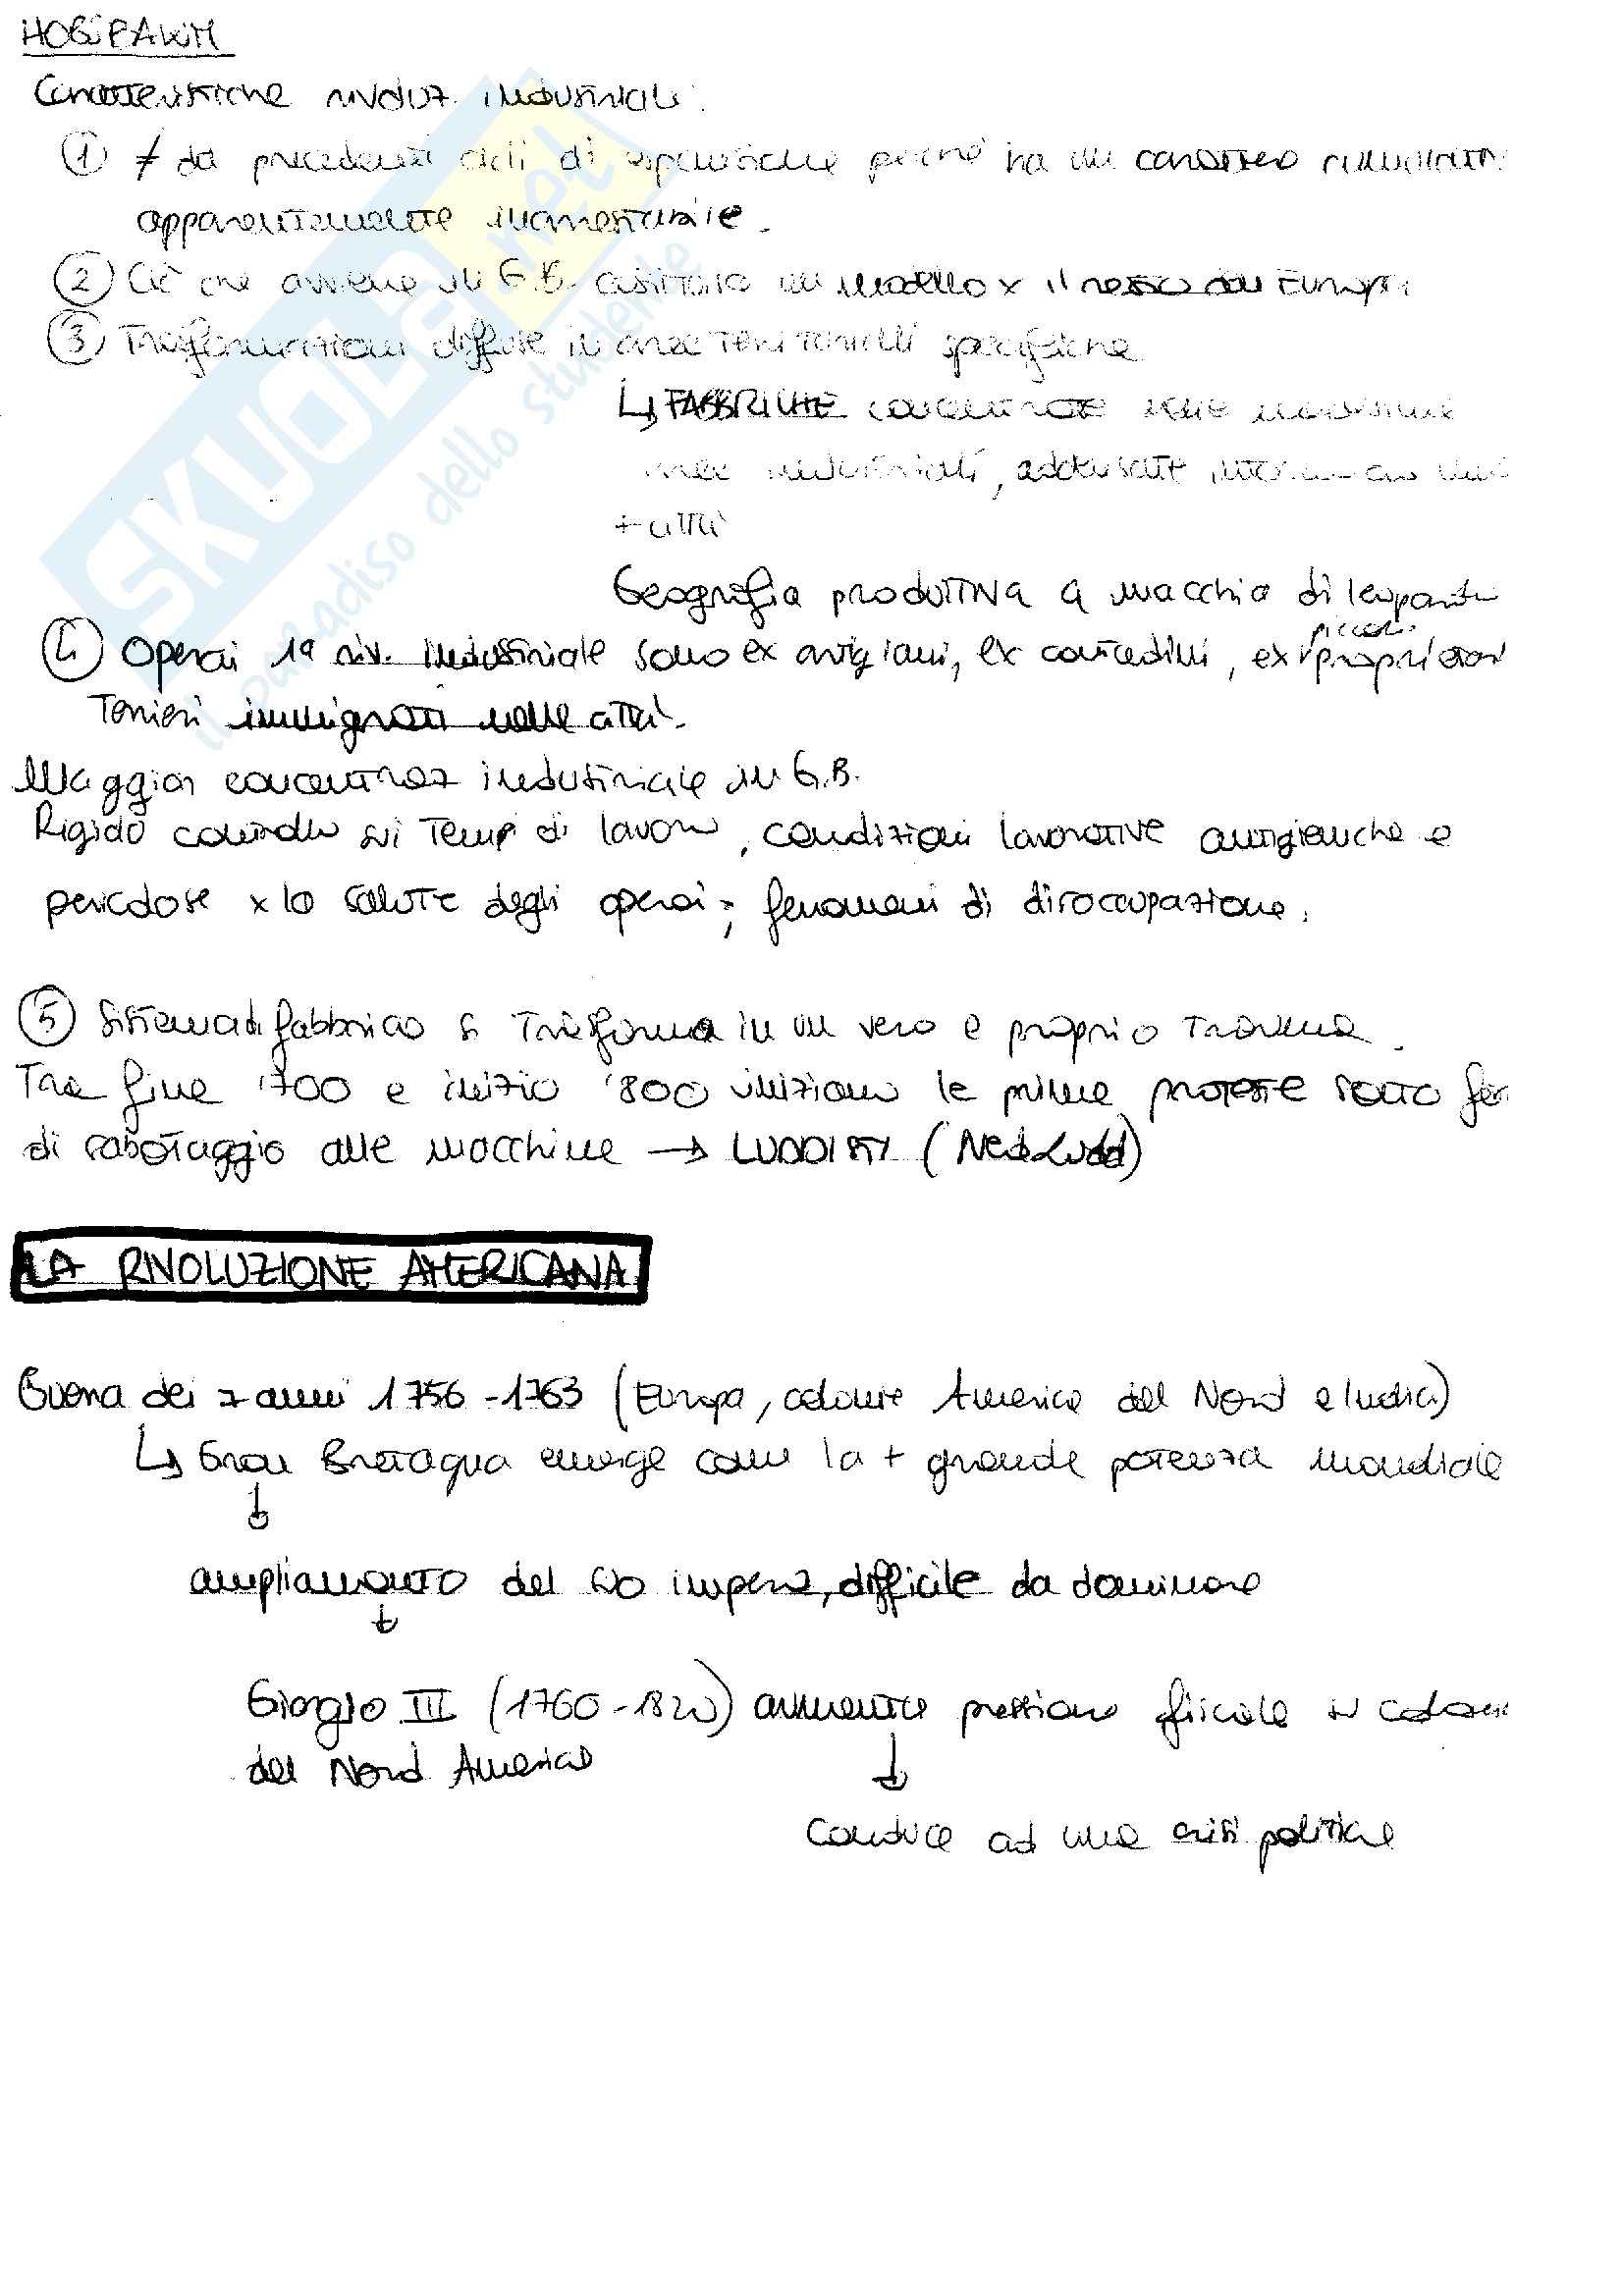 HOBSBAWM
Caratteristiche rivoluz. industriale:
① ≠ da precedenti cicli di espansione perché ha un carattere
apparentemente inarrestabile.
② Ciò che avviene in G.B. costituirà un modello x il resto dell'Europa
③ Trasformazioni diffuse in aree territoriali specifiche
↳ FABBRICHE concentrate nelle
aree industriali, addensate intorno
+ città
Geografia produttiva a macchia di leopardo
④ Operai 1ª riv. industriale sono ex artigiani, ex contadini, ex piccoli proprietari
Terrieri immigrati nelle città.
Maggior concentraz industriale in G.B.
Rigido controllo sui tempi di lavoro, condizioni lavorative antigieniche e
pericolose x la salute degli operai; fenomeni di disoccupazione.
⑤ Sistema di fabbrica si trasforma in un vero e proprio trauma.
Tra fine '700 e inizio '800 iniziano le prime proteste sotto for
di sabotaggio alle macchine → LUDDISTI (Ned Ludd)
LA RIVOLUZIONE AMERICANA
Guerra dei 7 anni 1756-1763 (Europa, colonie America del Nord e India)
↳ Gran Bretagna emerge come la + grande potenza mondiale
↓
ampliamento del suo impero, difficile da dominare
↓
Giorgio III (1760-1820) aumenta pressione fiscale su colonie
del Nord America
↓
Conduce ad una crisi politica
SKUOLA.net
il paradiso dello studente